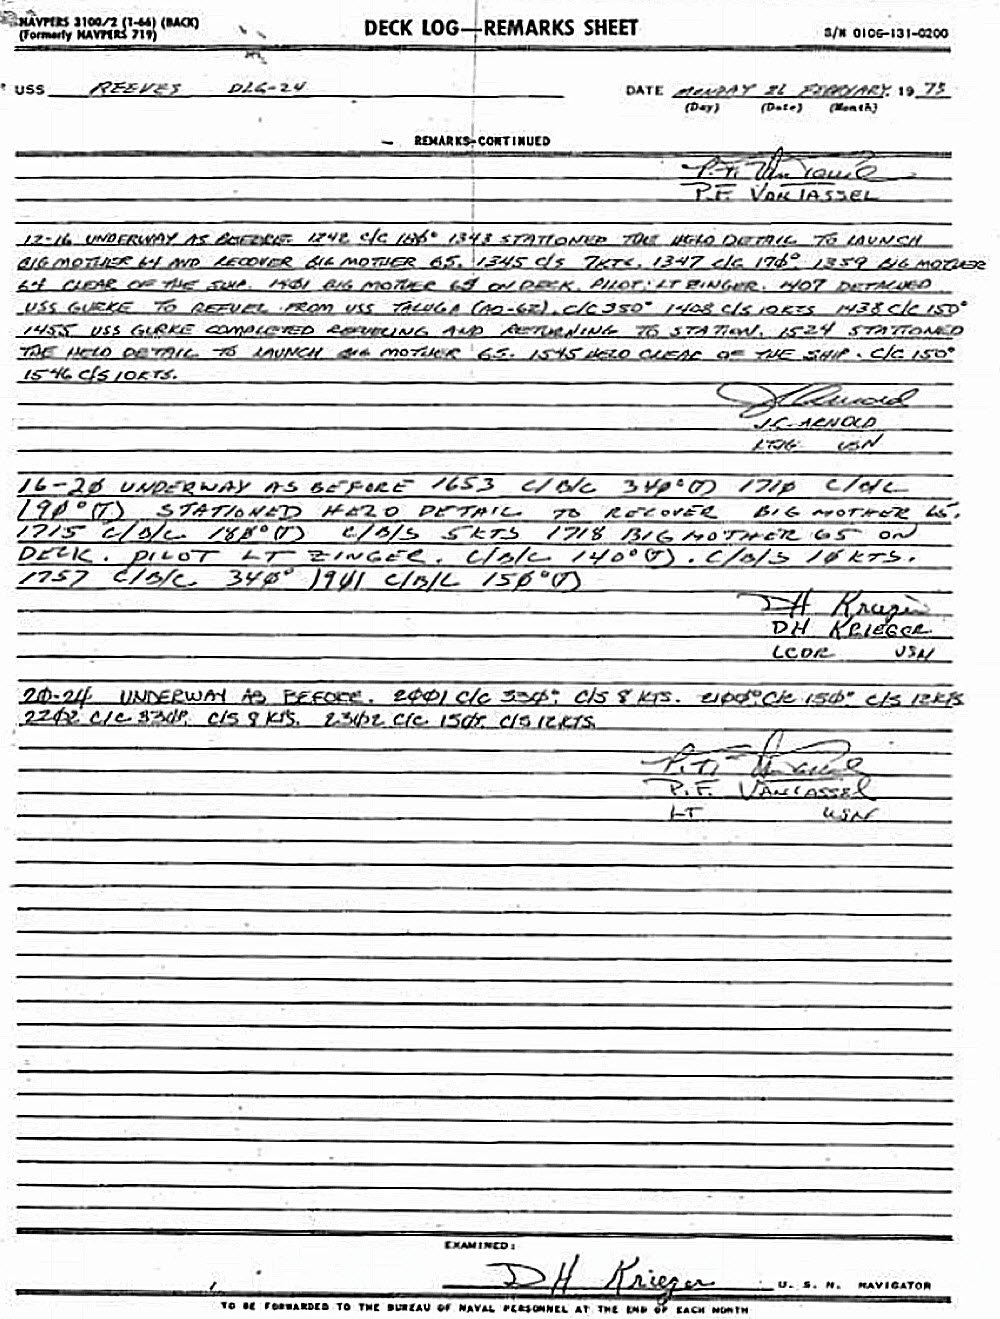 NAVPERS 3100/2 (1-66) (BACK)
(Formerly NAVPERS 719)
DECK LOG—REMARKS SHEET
S/N 0106-131-0200
USS REEVES DLG-24
DATE MONDAY 26 FEBRUARY 19 73
(Day) (Date) (Month)
REMARKS-CONTINUED
P.F. VanTassel
P.F. VANTASSEL
12-16 UNDERWAY AS BEFORE. 1242 C/C 1343 STATIONED THE HELO DETAIL TO LAUNCH
BIG MOTHER 64 AND RECOVER BIG MOTHER 65. 1345 C/S 7KTS. 1347 C/C 170° 1359 BIG MOTHER
64 CLEAR OF THE SHIP. 1401 BIG MOTHER 65 ON DECK. PILOT: LT ZINGER. 1407 DETACHED
USS GURKE TO REFUEL FROM USS TALUGA (AO-62). C/C 350° 1408 C/S 10KTS 1438 C/C 150°
1455 USS GURKE COMPLETED REFUELING AND RETURNING TO STATION. 1524 STATIONED
THE HELO DETAIL TO LAUNCH BIG MOTHER 65. 1545 HELO CLEAR OF THE SHIP. C/C 150°
1546 C/S 10KTS.
J.C. Arnold
J.C. ARNOLD
LTJG USN
16-20 UNDERWAY AS BEFORE 1653 C/B/C 340°(T) 1710 C/B/C
190°(T) STATIONED HELO DETAIL TO RECOVER BIG MOTHER 65.
1715 C/B/C 180°(T) C/B/S 5KTS 1718 BIG MOTHER 65 ON
DECK. PILOT LT ZINGER. C/B/C 140°(T). C/B/S 10KTS.
1757 C/B/C 340° 1901 C/B/C 150°(T)
DH Krieger
DH KRIEGER
LCDR USN
20-24 UNDERWAY AS BEFORE. 2001 C/C 330°. C/S 8 KTS. 2100 C/C 150° C/S 12KTS
2202 C/C 330°. C/S 8 KTS. 2302 C/C 150°. C/S 12KTS.
P.F. VanTassel
P.F. VANTASSEL
LT USN
EXAMINED:
DH Krieger U. S. N. NAVIGATOR
TO BE FORWARDED TO THE BUREAU OF NAVAL PERSONNEL AT THE END OF EACH MONTH